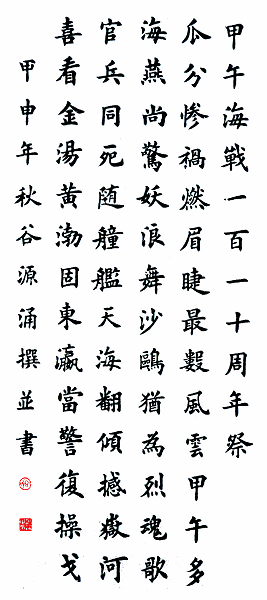 甲午海戰一百一十周年祭
瓜分慘禍燃眉睫最數風雲甲午多
海燕尚驚妖浪舞沙鷗猶為烈魂歌
官兵同死随艟艦天海翻傾撼嶽河
喜看金湯黄渤固東瀛當警復操戈
甲申年秋谷源涌撰並書